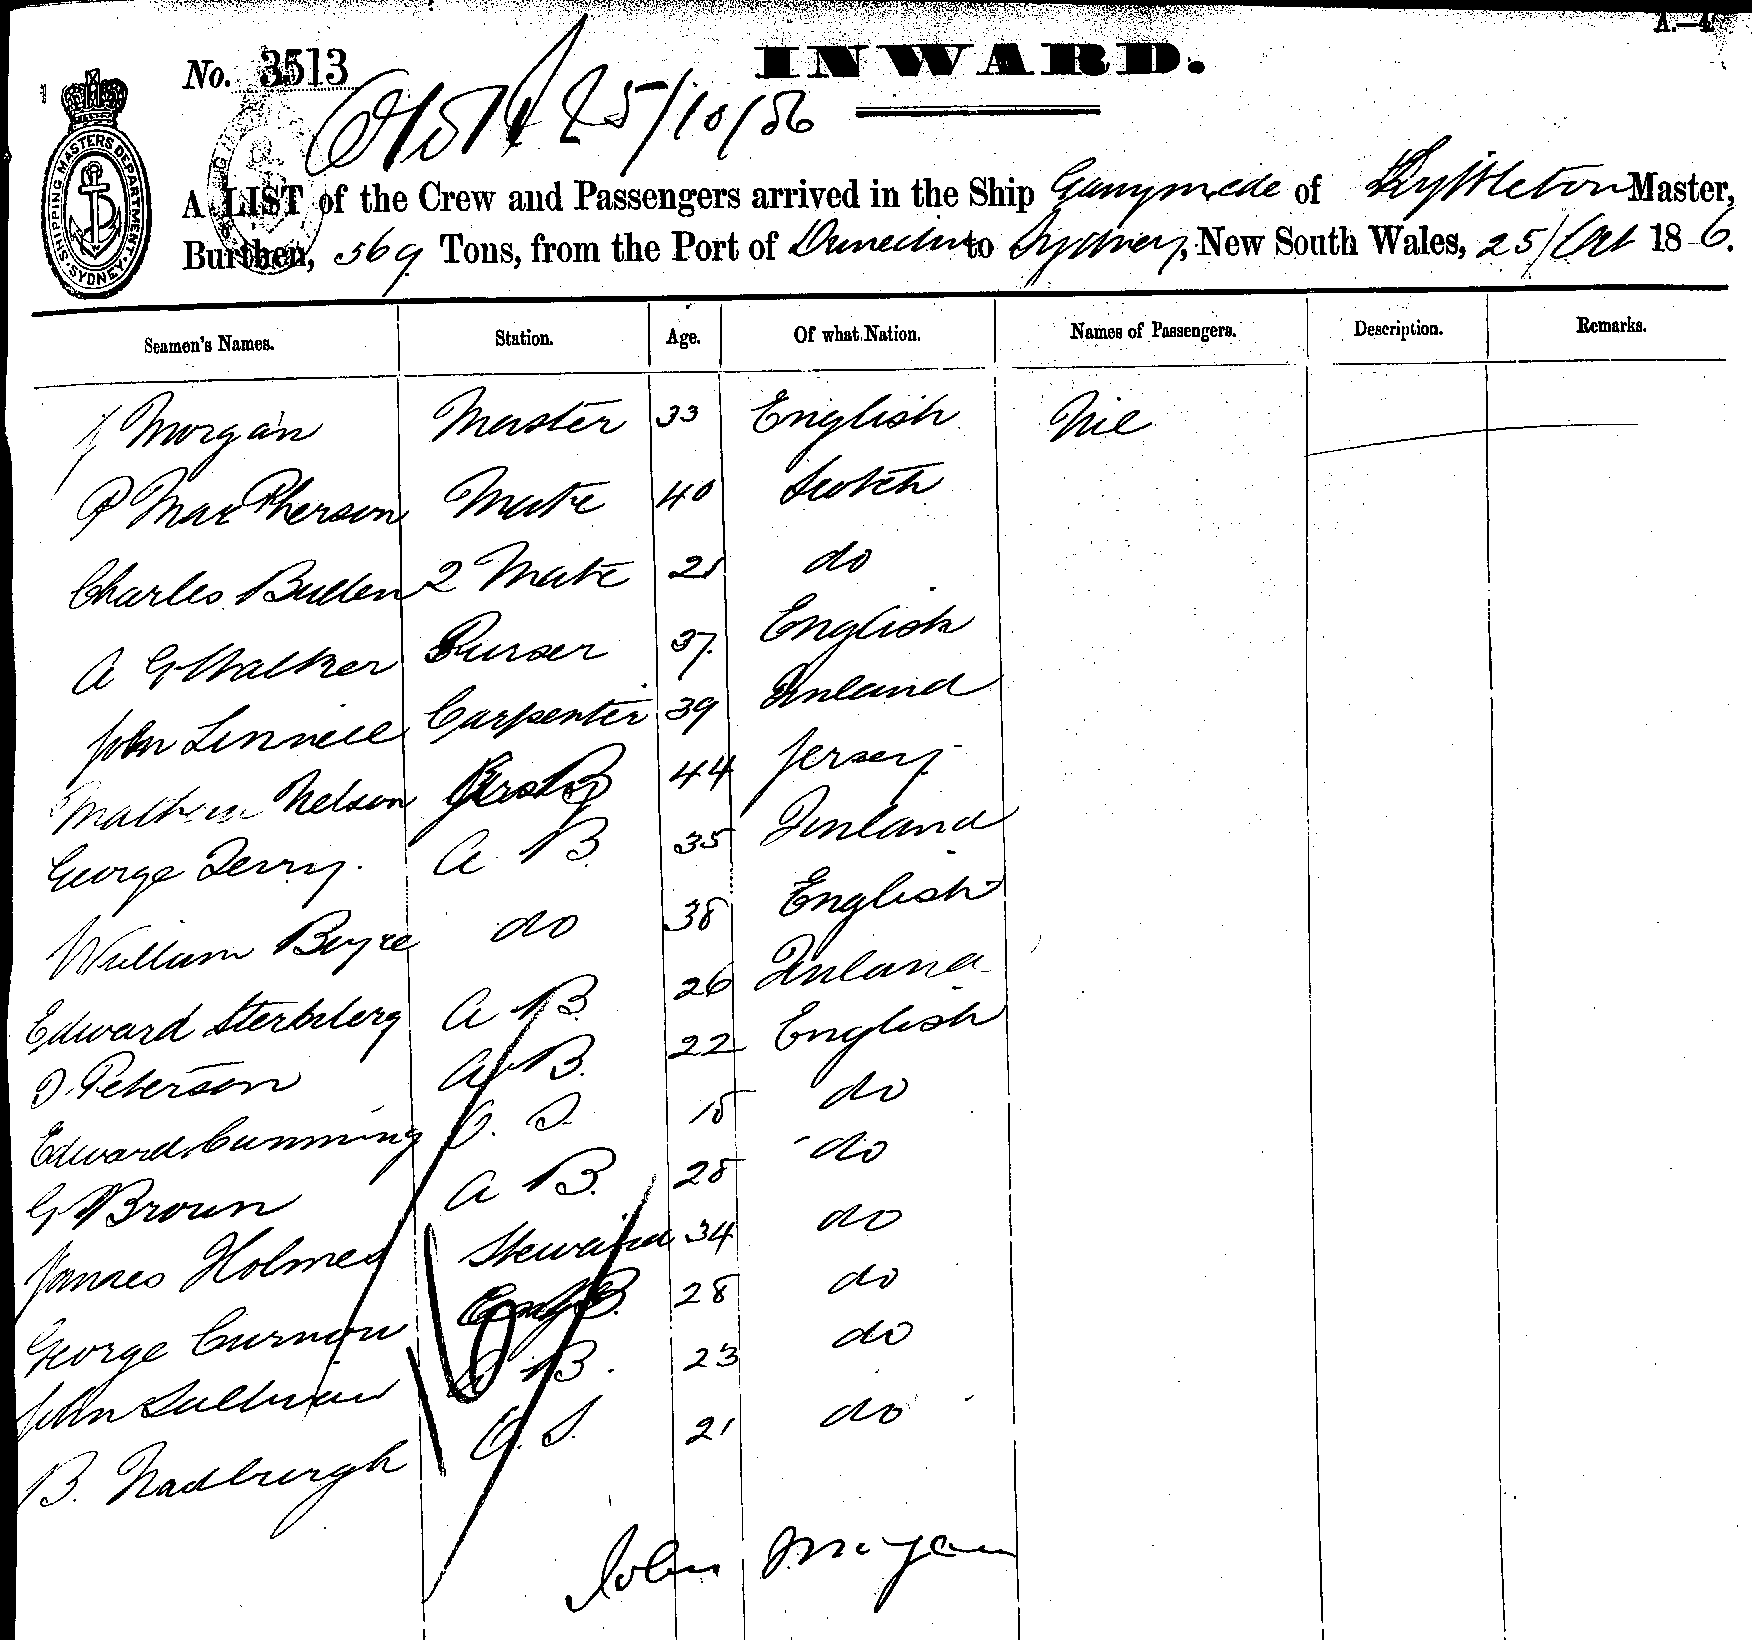 A.—4
INWARD.
No. 3513
25/10/86
SHIPPING MASTERS DEPARTMENT SYDNEY
A LIST of the Crew and Passengers arrived in the Ship Ganymede of Lyttleton Master,
Burthen, 569 Tons, from the Port of Dunedin to Sydney, New South Wales, 25/Oct 18 6.
Seamen's Names. Station. Age. Of what Nation. Names of Passengers. Description. Remarks.
J Morgan Master 33 English Nil
P MacPherson Mate 40 Scotch
Charles Bullen 2 Mate 21 do
A G Walker Purser 37 English
John Linnell Carpenter 39 Finland
Mathew Nelson 44 Jersey
George Terry A B 35 Finland
William Boyce do 38 English
Edward A B 26 Finland
J. Peterson A B. 22 English
Edward Cumming O. S. 18 do
G Brown A B. 28 do
James Holmes Steward 34 do
George Curnow 28 do
John Sullivan A B. 23 do
B. Nadburgh O. S. 21 do
John Morgan